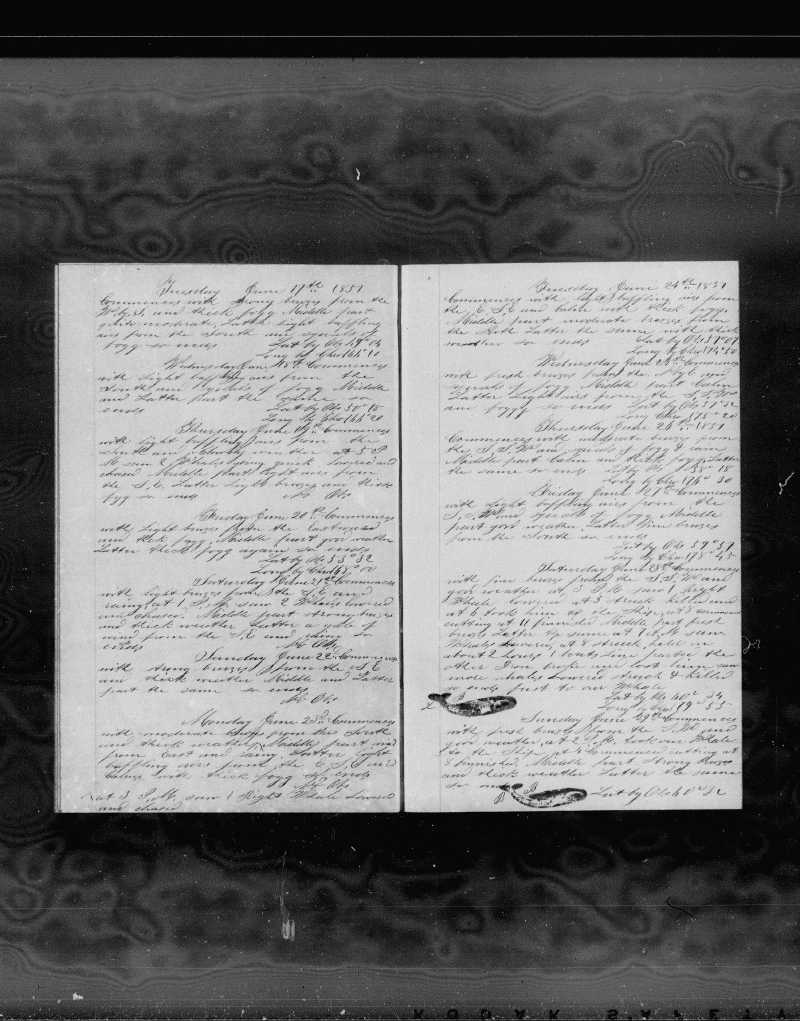 Tuesday June 17th 1851
Commences with strong breezes from the
W by S, and thick fogg Middle part
quite moderate, Latter light baffling
airs from the South and spells of
fogg so ends Lat by Obs 49° 04
Long by Chro 166° 10
Wednesday June 18th Commences
with light baffling airs from the
South and spells of fogg Middle
and Latter part the same so
ends Lat by Obs 50° 15
Long by Chro 166° 20
Thursday June 19th Commences
with light baffling airs from the
South and cloudy weather at 5 P
M saw 2 Whales going quick lowered and
chased Middle part light airs from
the S, E, Latter light breezes and thick
fogg so ends No Obs
Friday June 20th Commences
with light breezes from the eastward
and thick fogg Middle part good weather
Latter thick fogg again so ends
Lat by Obs 53° 32
Long by Chro
Saturday June 21st Commences
with light breezes from the S, E and
rainy at 1 P, M, saw 2 Whales lowered
and chased. Middle part strong breezes
and thick weather Latter a gale of
wind from the S, E and rainy so
ends No Obs
Sunday June 22 Commences
with strong breezes from the S, E
and thick weather Middle and Latter
part the same so ends
No Obs
Monday June 23d Commences
with moderate breezes from the South
and thick weather, Middle part wind
from East and rainy Latter light
baffling airs from the E, S, E and
Calms with thick fogg so ends
No Obs
at 3 P, M, saw 1 Right Whale lowered
and chased
Tuesday June 24th 1851
Commences with light baffling airs from
the E, S, E and calm with thick fogg
Middle part moderate breezes from
the Latter the same with thick
weather so ends Lat by Obs 57° 07
Long by Chro 174° 50
Wednesday June 25th Commences
with fresh breezes from the and
spells of fogg Middle part Calm
Latter Light airs from the S, S, W
and foggy so ends Lat by Obs 57° 32
Long by Chro 175° 20
Thursday June 26th 1851
Commences with moderate breezes from
the S, S, W and spells of fogg & rain
Middle part Calm and thick fogg Latter
the same so ends Lat by Obs 58° 18
Long by Chro 176° 30
Friday June 27th Commences
with light baffling airs from the
S, S, W and spells of fogg Middle
part good weather, Latter fine breezes
from the South so ends
Lat by Obs 59° 39
Long by Chro 178° 45
Saturday June 28th Commences
with fine breezes from the S, S, W and
good weather at 3 P, M saw 1 Right
Whale lowered at 5 struck killed and
at 6 took him to the Ship, at 8 commenced
cutting at 11 finished Middle part fresh
breezes Latter the same at 1 A, M saw
Whales lowered, at 6 struck, held on
about 2 hours boats line parted the
other Iron broke and lost him saw
more whales lowered struck & killed
so ends fast to our Whale
Lat by Obs 60° 34
Long by Chro 179° 55
Sunday June 29th Commences
with fresh breezes from the S, W and
good weather, at 1 P, M, took our Whale
to the Ship, at 4 commenced cutting at
8 finished, Middle part strong breezes
and thick weather Latter the same
so ends Lat by Obs 60° 32